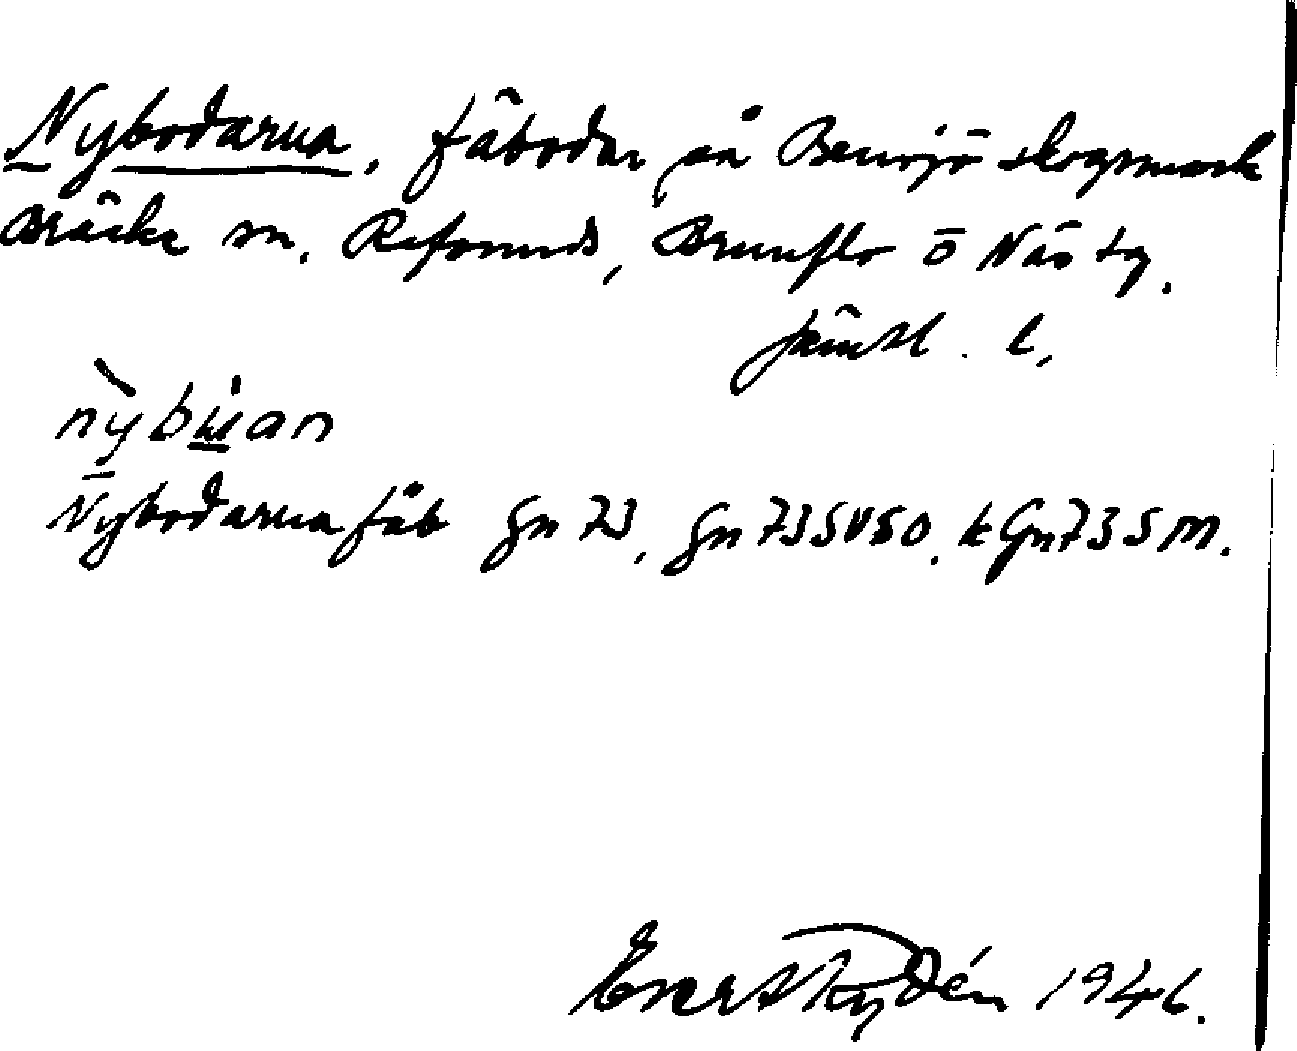 Nybodarna, fäbodar på Bensjö skogsmark
Bräcke sn. Refsunds, Brunflo o Näs tg.
Jämtl. l.
nybuan
Nybodarna fäb Gn 73, Gn 73 SV50. k Gn 73 5 M.
Evert Rydén 1946.